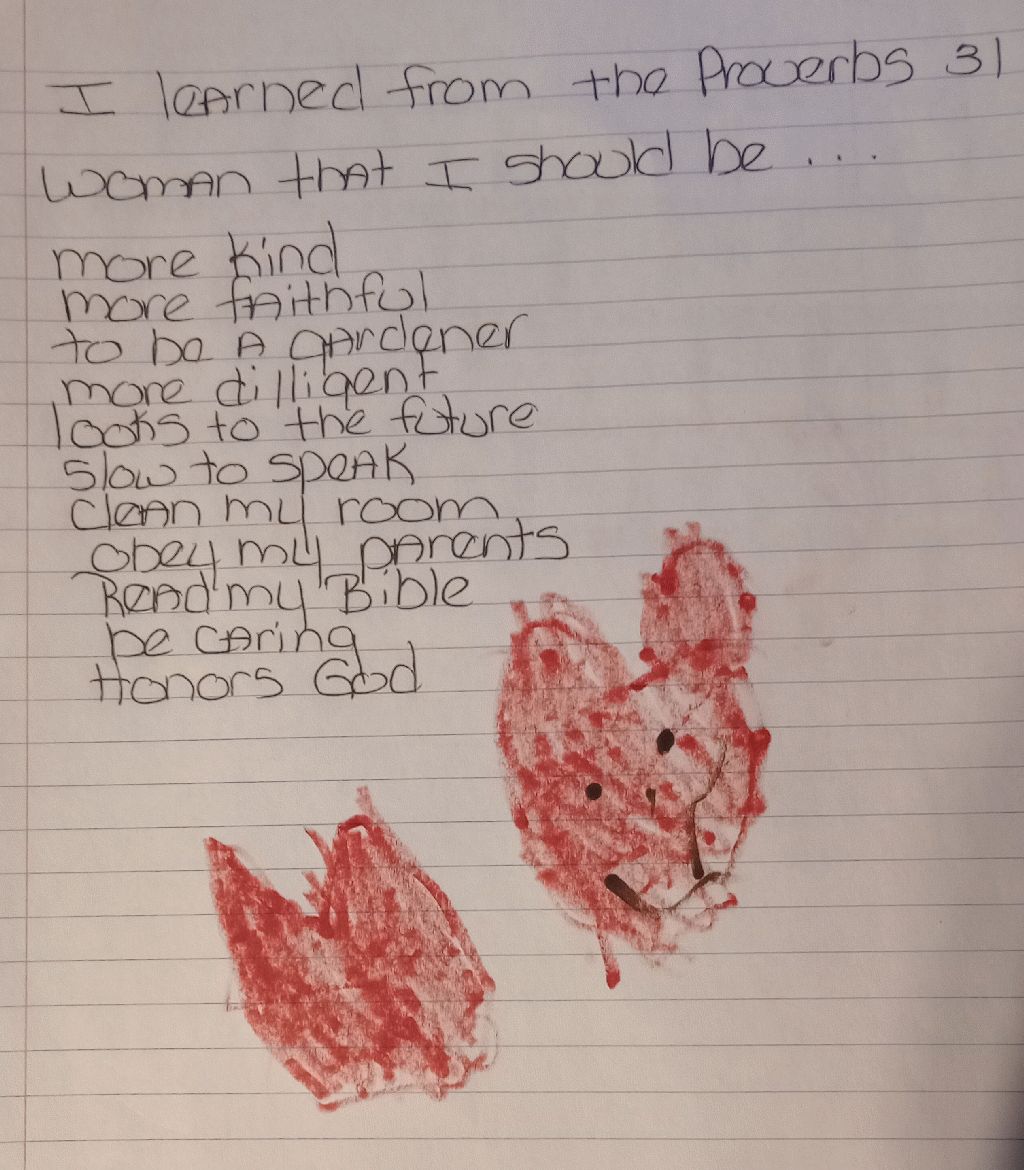 I learned from the Proverbs 31
woman that I should be ...
more kind
more faithful
to be a gardener
more dilligent
looks to the future
slow to speak
clean my room
obey my parents
Read my Bible
be caring
Honors God